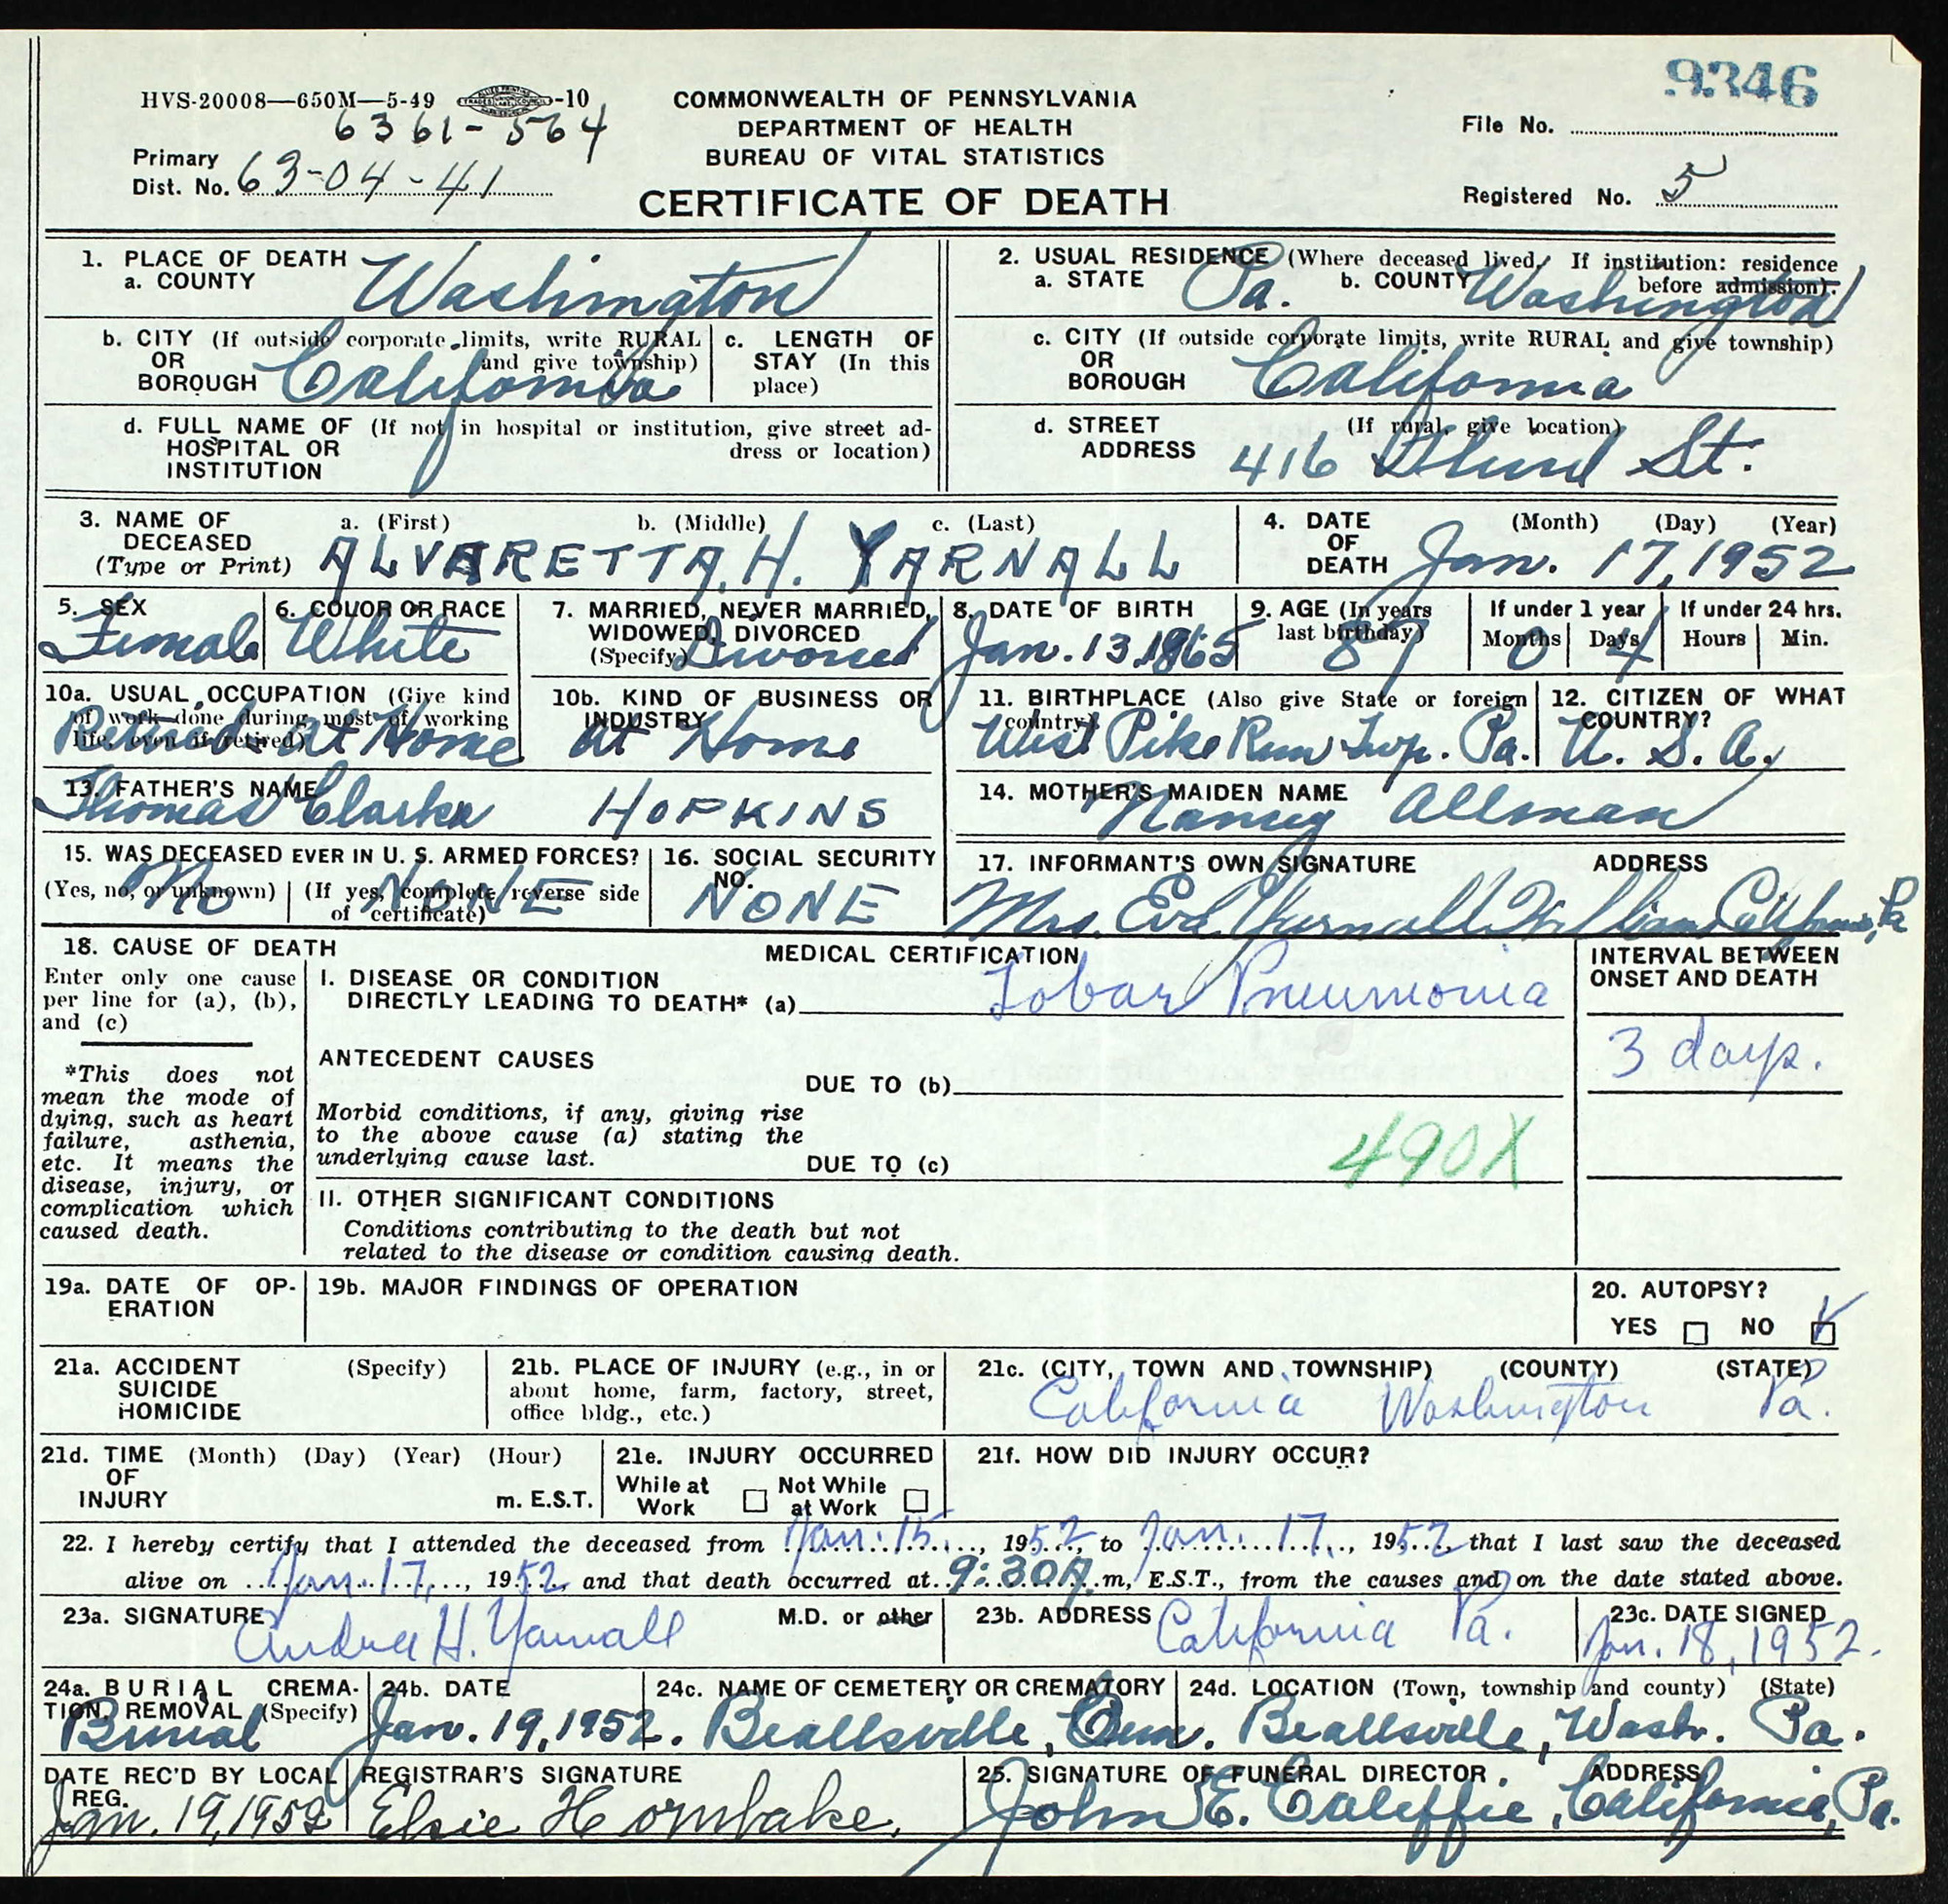 9346
HVS-20008—650M—5-49 -10
6361-564
COMMONWEALTH OF PENNSYLVANIA
DEPARTMENT OF HEALTH
BUREAU OF VITAL STATISTICS
CERTIFICATE OF DEATH
Primary
Dist. No. 63-04-41
File No.
Registered No. 5
1. PLACE OF DEATH
a. COUNTY Washington
2. USUAL RESIDENCE (Where deceased lived. If institution: residence
before admission).
a. STATE Pa. b. COUNTY Washington
b. CITY (If outside corporate limits, write RURAL
OR and give township)
BOROUGH California
c. LENGTH OF
STAY (In this
place)
c. CITY (If outside corporate limits, write RURAL and give township)
OR
BOROUGH California
d. FULL NAME OF (If not in hospital or institution, give street ad-
HOSPITAL OR dress or location)
INSTITUTION
d. STREET (If rural, give location)
ADDRESS 416 St.
3. NAME OF DECEASED
(Type or Print)
a. (First) b. (Middle) c. (Last)
ALVARETTA H. YARNALL
4. DATE OF DEATH
(Month) (Day) (Year)
Jan. 17, 1952
5. SEX
Female
6. COLOR OR RACE
White
7. MARRIED, NEVER MARRIED,
WIDOWED, DIVORCED
(Specify) Divorced
8. DATE OF BIRTH
Jan. 13, 1865
9. AGE (In years
last birthday)
87
If under 1 year
Months Days
0 4
If under 24 hrs.
Hours Min.
10a. USUAL OCCUPATION (Give kind
of work done during most of working
life, even if retired)
Retired at Home
10b. KIND OF BUSINESS OR
INDUSTRY
At Home
11. BIRTHPLACE (Also give State or foreign
country)
West Pike Run Twp. Pa.
12. CITIZEN OF WHAT
COUNTRY?
U. S. A.
13. FATHER'S NAME
Thomas Clarke HOPKINS
14. MOTHER'S MAIDEN NAME
Nancy Allman
15. WAS DECEASED EVER IN U. S. ARMED FORCES?
(Yes, no, or unknown) (If yes, complete reverse side
of certificate)
No NONE
16. SOCIAL SECURITY
NO.
NONE
17. INFORMANT'S OWN SIGNATURE ADDRESS
Mrs. Eva Yarnall William California, Pa
18. CAUSE OF DEATH
Enter only one cause
per line for (a), (b),
and (c)
*This does not
mean the mode of
dying, such as heart
failure, asthenia,
etc. It means the
disease, injury, or
complication which
caused death.
MEDICAL CERTIFICATION
I. DISEASE OR CONDITION
DIRECTLY LEADING TO DEATH* (a) Lobar Pneumonia
ANTECEDENT CAUSES
DUE TO (b)
Morbid conditions, if any, giving rise
to the above cause (a) stating the
underlying cause last.
DUE TO (c)
490X
II. OTHER SIGNIFICANT CONDITIONS
Conditions contributing to the death but not
related to the disease or condition causing death.
INTERVAL BETWEEN
ONSET AND DEATH
3 days.
19a. DATE OF OP-
ERATION
19b. MAJOR FINDINGS OF OPERATION
20. AUTOPSY?
YES NO
21a. ACCIDENT (Specify)
SUICIDE
HOMICIDE
21b. PLACE OF INJURY (e.g., in or
about home, farm, factory, street,
office bldg., etc.)
21c. (CITY, TOWN AND TOWNSHIP) (COUNTY) (STATE)
California Washington Pa.
21d. TIME (Month) (Day) (Year) (Hour)
OF
INJURY m. E.S.T.
21e. INJURY OCCURRED
While at Not While
Work at Work
21f. HOW DID INJURY OCCUR?
22. I hereby certify that I attended the deceased from Jan. 15, 1952, to Jan. 17, 1952, that I last saw the deceased
alive on Jan. 17, 1952, and that death occurred at 9:30A.m, E.S.T., from the causes and on the date stated above.
23a. SIGNATURE M.D. or other
H. Yarnall
23b. ADDRESS
California Pa.
23c. DATE SIGNED
Jan. 18, 1952.
24a. BURIAL CREMA-
TION, REMOVAL (Specify)
Burial
24b. DATE
Jan. 19, 1952.
24c. NAME OF CEMETERY OR CREMATORY
Beallsville, Cem.
24d. LOCATION (Town, township and county) (State)
Beallsville, Wash. Pa.
DATE REC'D BY LOCAL
REG.
Jan. 19, 1952
REGISTRAR'S SIGNATURE
Elsie Hornbake.
25. SIGNATURE OF FUNERAL DIRECTOR ADDRESS
John E. Caleffie, California, Pa.